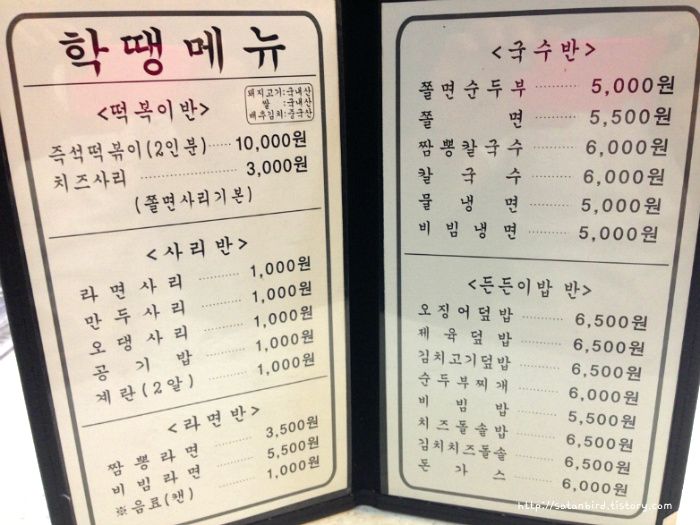 학땡메뉴
<떡복이반>
돼지고기:국내산
쌀 :국내산
배추김치:중국산
즉석떡볶이(2인분) 10,000원
치즈사리 3,000원
(쫄면사리기본)
<사리반>
라면사리 1,000원
만두사리 1,000원
오댕사리 1,000원
공기밥 1,000원
계란(2알) 1,000원
<라면반>
짬뽕라면 3,500원
비빔라면 5,500원
※음료(캔) 1,000원
<국수반>
쫄면순두부 5,000원
쫄면 5,500원
짬뽕칼국수 6,000원
칼국수 6,000원
물냉면 5,000원
비빔냉면 5,000원
<든든이밥 반>
오징어덮밥 6,500원
제육덮밥 6,500원
김치고기덮밥 6,500원
순두부찌개 6,000원
비빔밥 5,500원
치즈돌솥밥 6,500원
김치치즈돌솥 6,500원
돈가스 6,000원
http://satanbird.tistory.com